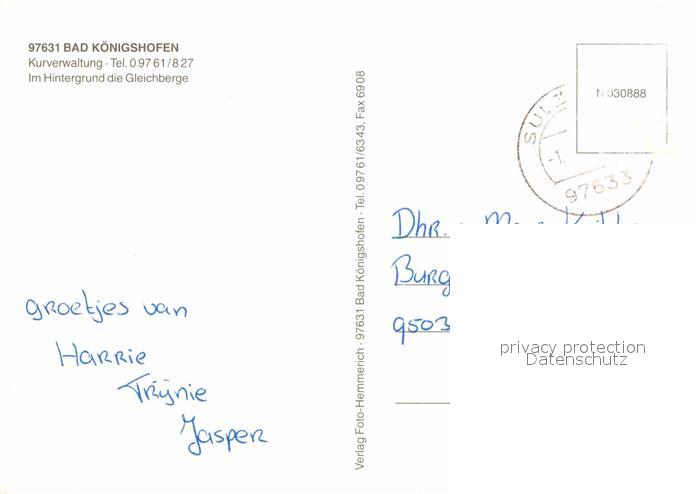 97631 BAD KÖNIGSHOFEN
Kurverwaltung · Tel. 0 97 61 / 8 27
Im Hintergrund die Gleichberge
groetjes van
Harrie
Trijnie
Jasper
Verlag Foto-Hemmerich · 97631 Bad Königshofen · Tel. 0 97 61/63 43, Fax 69 08
N 030888
-1.
97633
Dhr.
Burg
9503
privacy protection
Datenschutz